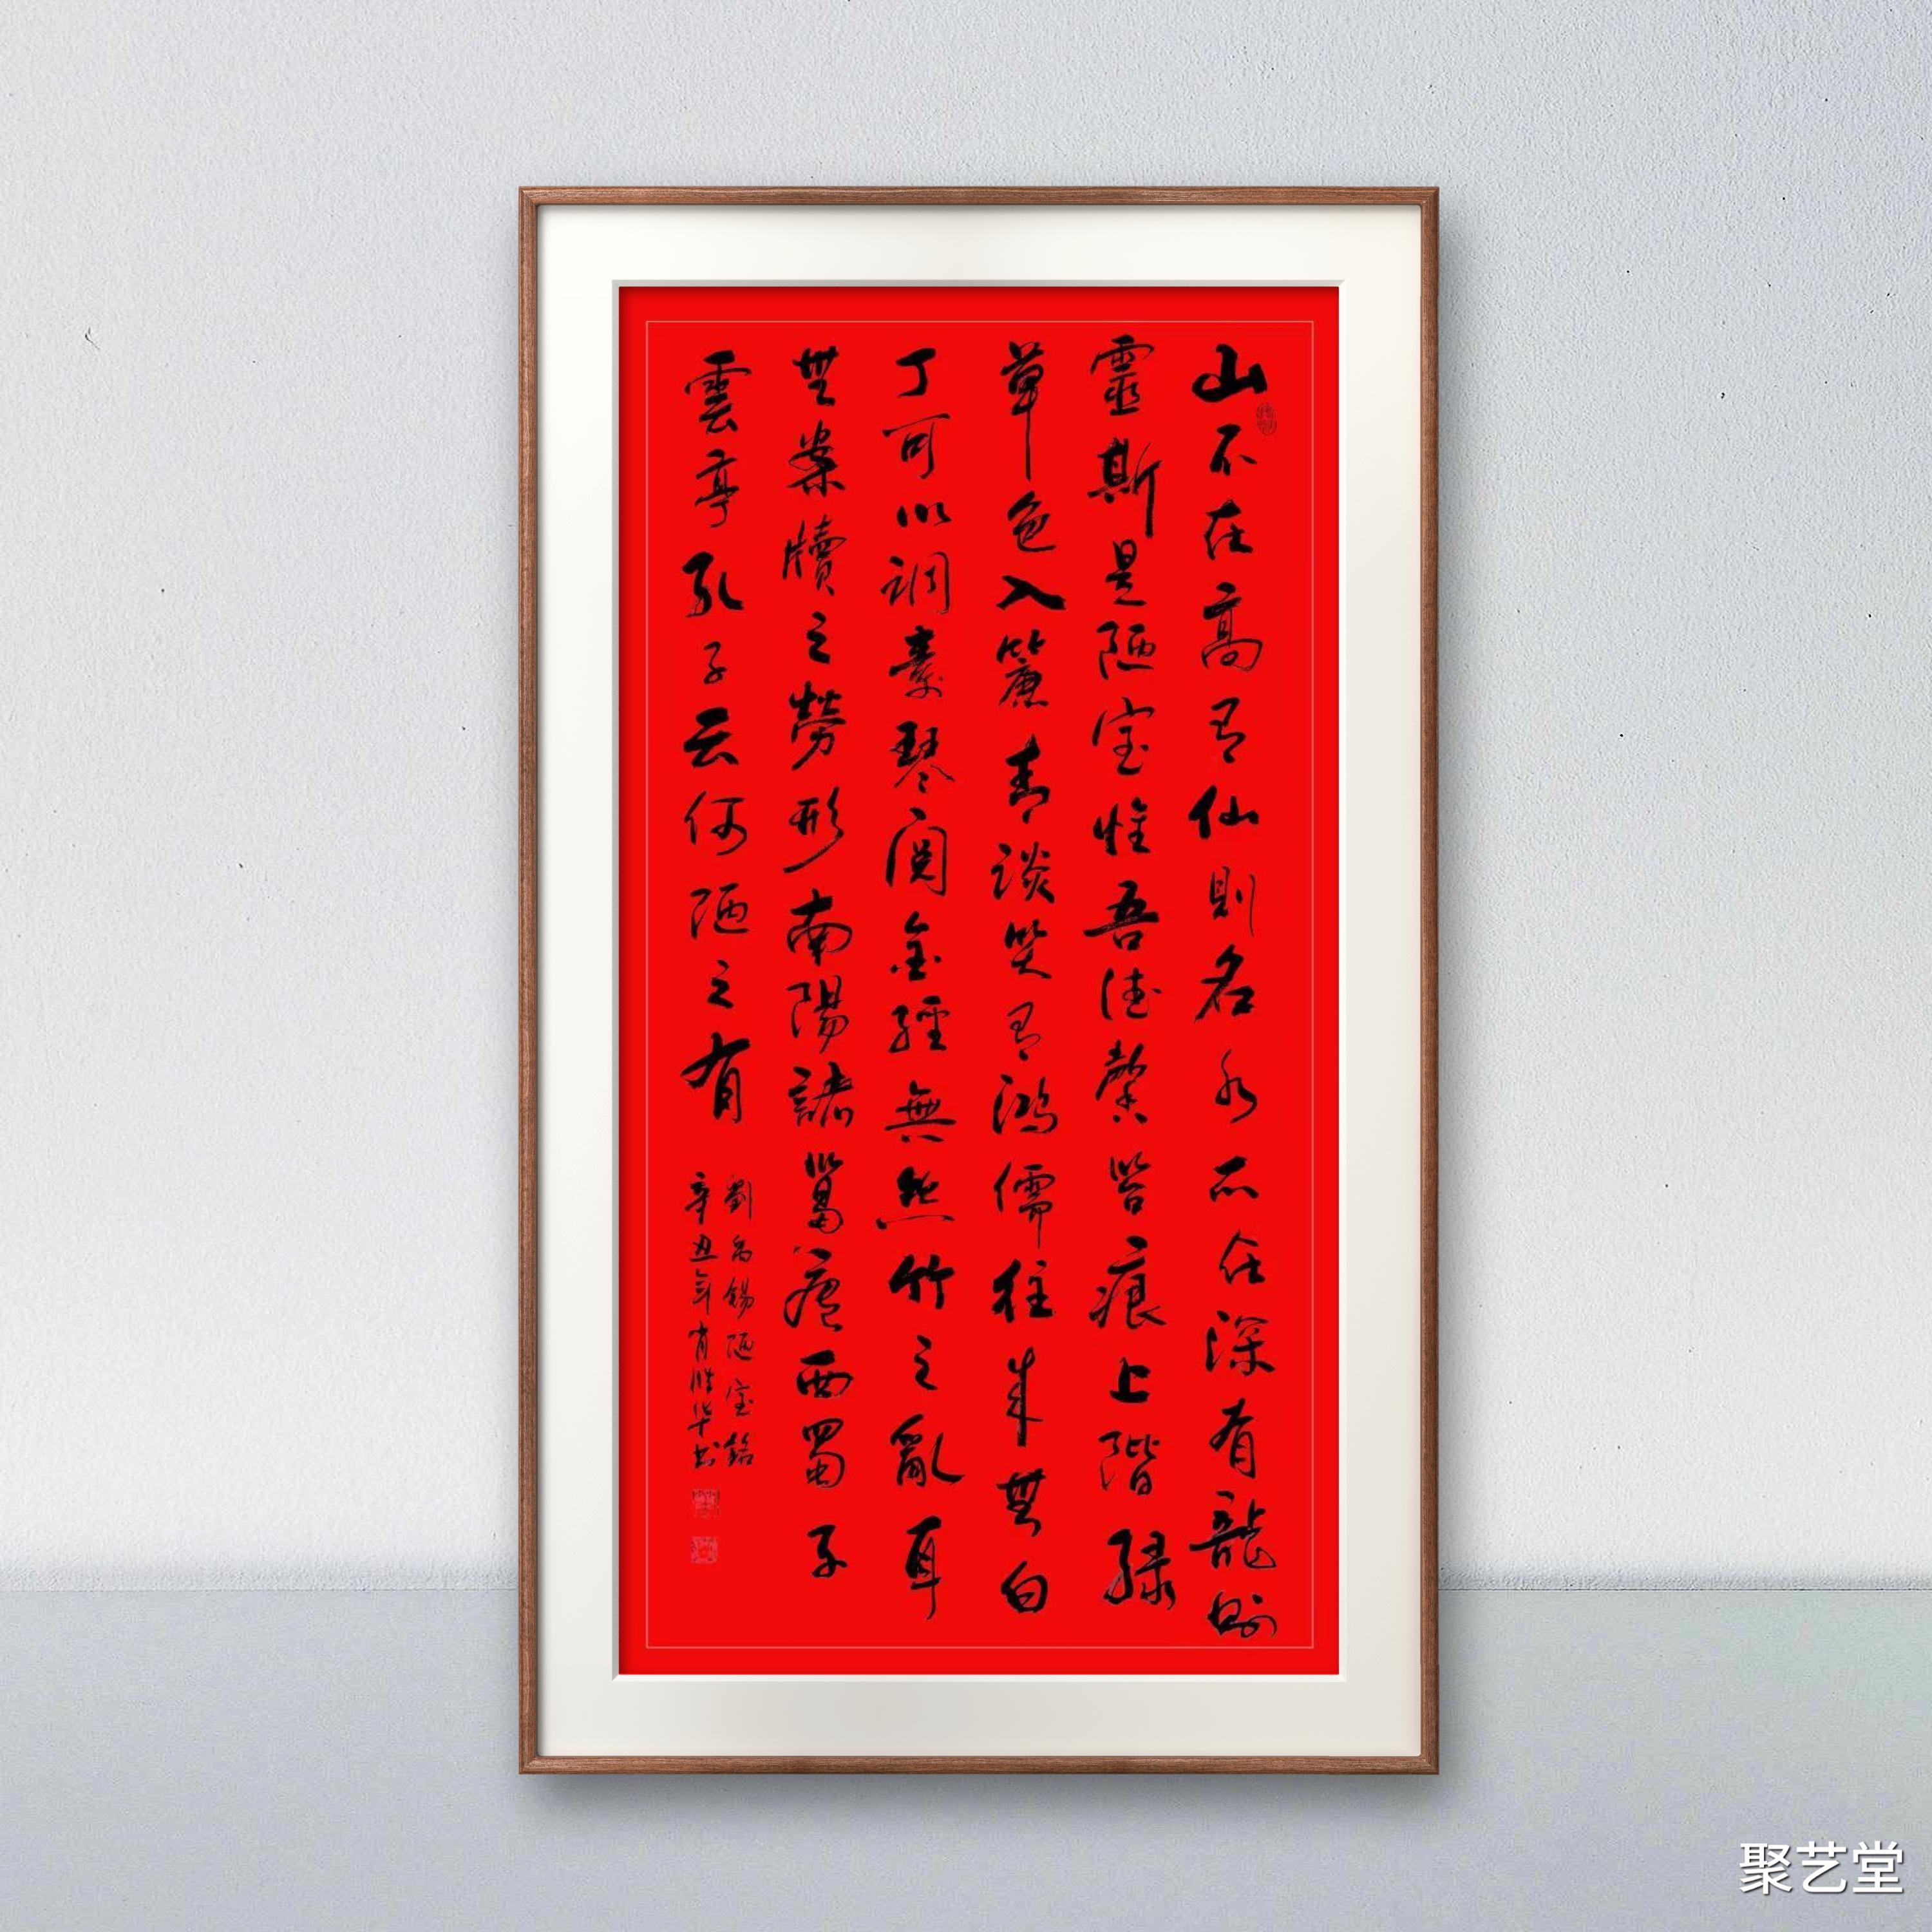 山不在高有仙則名水不在深有龍則
靈斯是陋室惟吾德馨苔痕上階緑
草色入簾青談笑有鴻儒往來無白
丁可以調素琴閱金經無絲竹之亂耳
無案牘之勞形南陽諸葛廬西蜀子
雲亭孔子云何陋之有
劉禹錫陋室銘
辛丑年肖胜华书
聚艺堂